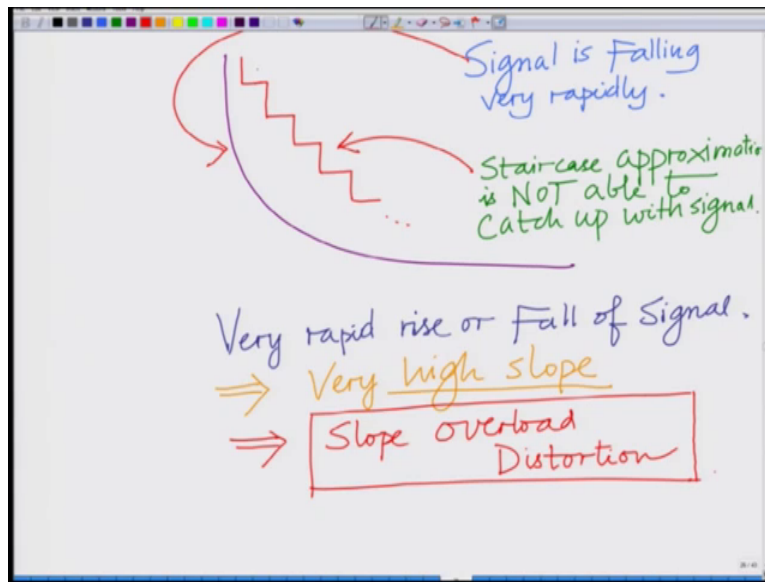 Signal is Falling
very rapidly.
Staircase approximatio
is NOT able to
Catch up with signal.
...
Very rapid rise or Fall of Signal.
⇒ Very high slope
⇒ Slope Overload
Distortion